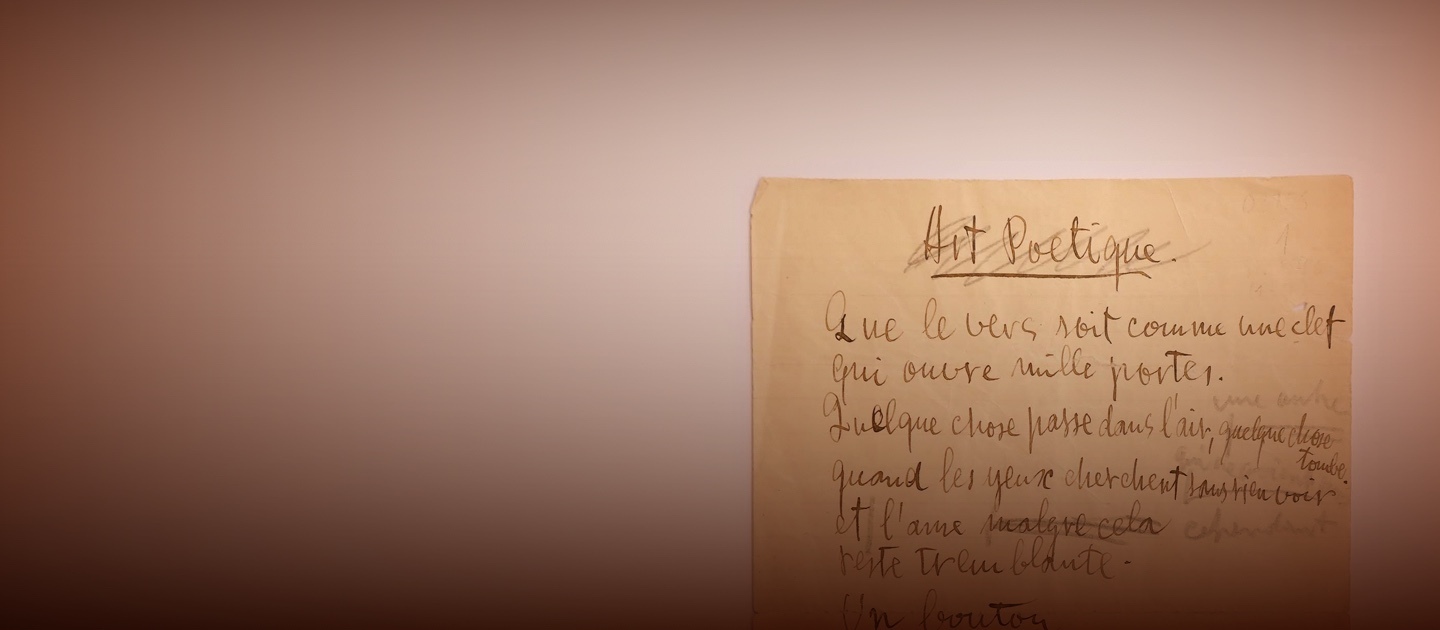 Art Poetique.
Que le vers soit comme une clef
qui ouvre mille portes.
une autre
Quelque chose passe dans l'air, quelque chose
tombe.
quand les yeux cherchent sans rien voir
et l'ame malgre cela cependant
reste tremblante.
Un bouton